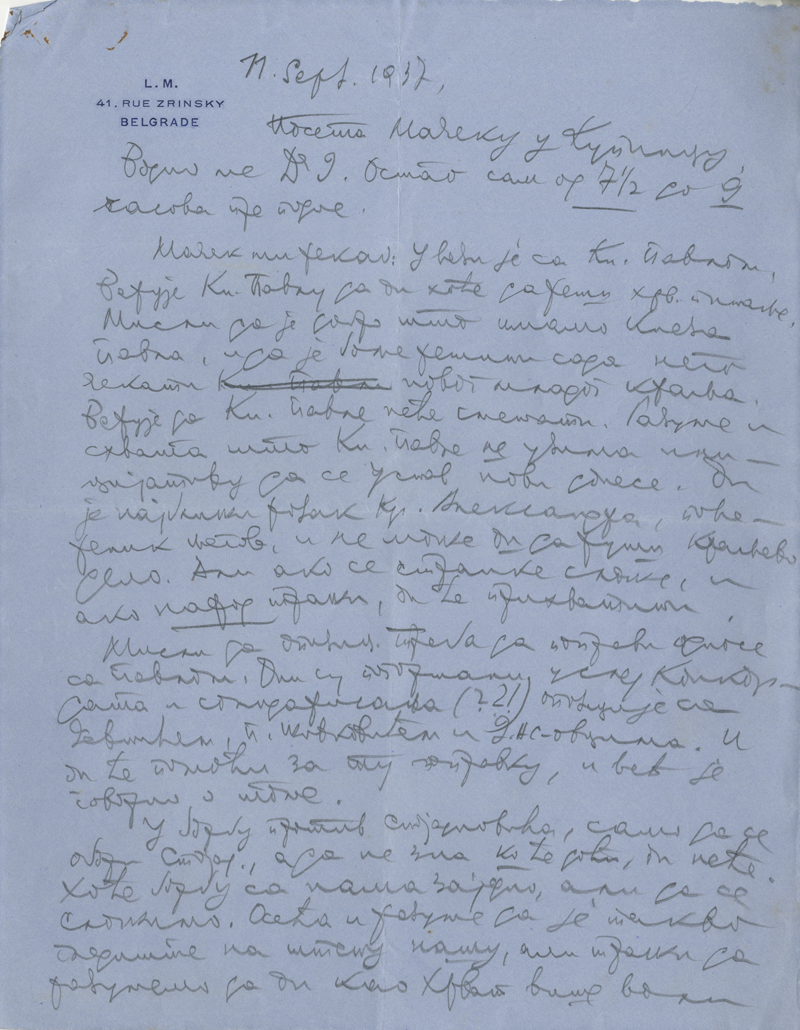 L. M.
41, RUE ZRINSKY
BELGRADE
11. Sept. 1937,
Посета Мачеку у Купинцу,
Водио ме Dr J. Остао сам од 7 1/2 до 9
часова пре подне.
Мачек ми рекао: У вези је са Кн. Павлом,
Верује Кн. Павлу да он хоће да реши хрв. питање.
Мисли да је добро што имамо Кнеза
Павла, и да је боље решити сада него
чекати Кн. Павла новог младог краља.
Верује да Кн. Павле неће сметати. Разуме и
схвата што Кн. Павле не узима ини-
цијативу да се Устав нови донесе. Он
је најближи рођак Кр. Александра, пове-
реник његов, и не може он да руши Краљево
дело. Али ако се странке сложе, и
ако народ тражи, он ће прихватити.
Мисли да опозиц. треба да поправи односе
са Павлом. Они су услед Конкор-
дата и солидарисања (? 2!) опозиције са
Јевтићем, П. Живковићем и ЈНС-овцима. И
он ће помоћи за ту поправку, и већ је
говорио о томе.
У борбу против Стојадиновића, само да се
обори Стојад., а да не зна ко ће доћи, он неће.
Хоће борбу са нама заједно, али да се
сложимо. Осећа и разуме да је такво
гледиште на штету нашу, али тражи да
разумемо да он као Хрват више воли